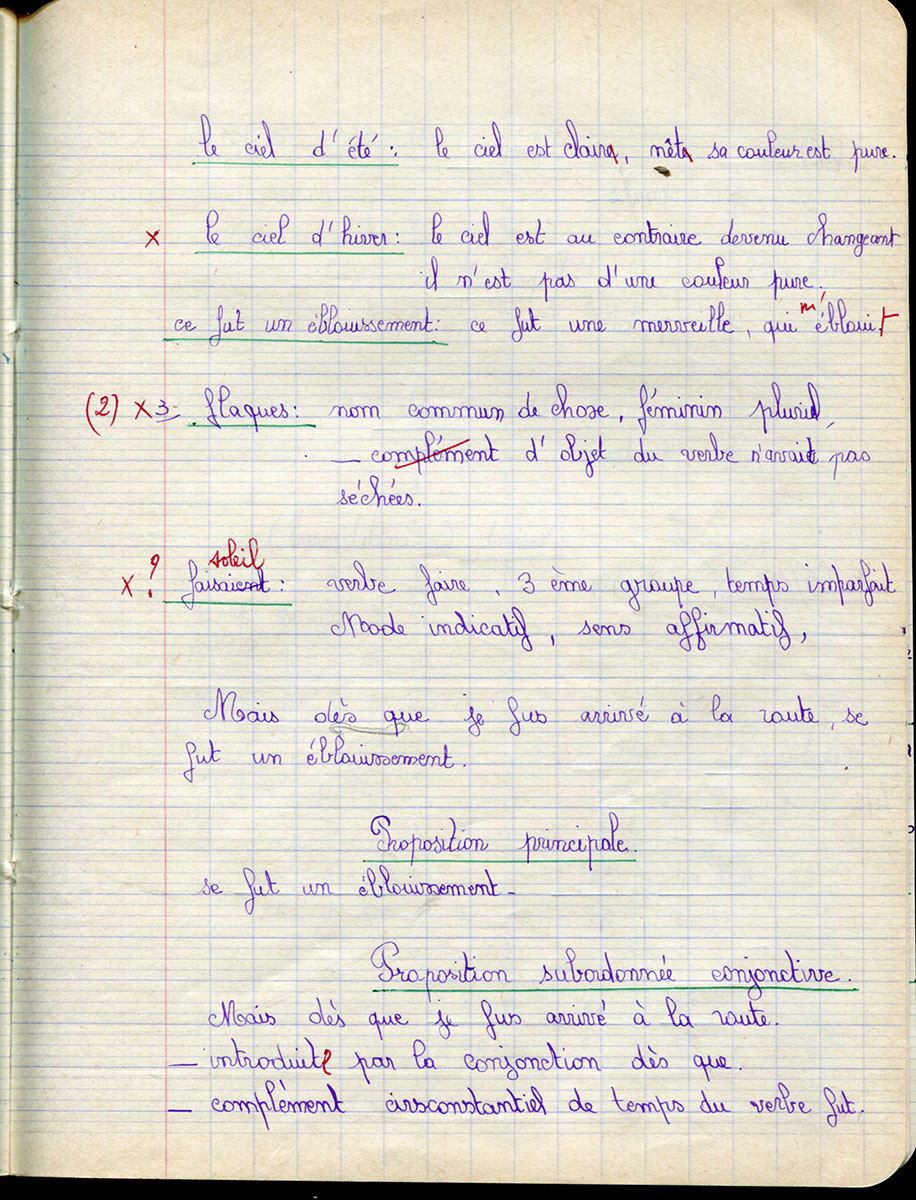 le ciel d'été : le ciel est clair, sa couleur est pure.
x le ciel d'hiver : le ciel est au contraire devenu changeant
il n'est pas d'une couleur pure.
ce fut un éblouissement : ce fut une merveille, qui m'éblouit
(2) x 3- flaques : nom commun de chose, féminin pluriel,
— complément d'objet du verbe n'avait pas
séchées.
soleil
x ? faisaient : verbe faire, 3 ème groupe, temps imparfait
Mode indicatif, sens affirmatif,
Mais dès que je fus arrivé à la route, se
fut un éblouissement.
Proposition principale.
se fut un éblouissement -
Proposition subordonnée conjonctive.
Mais dès que je fus arrivé à la route.
— introduite par la conjonction dès que.
— complément cirsconstantiel de temps du verbe fut.